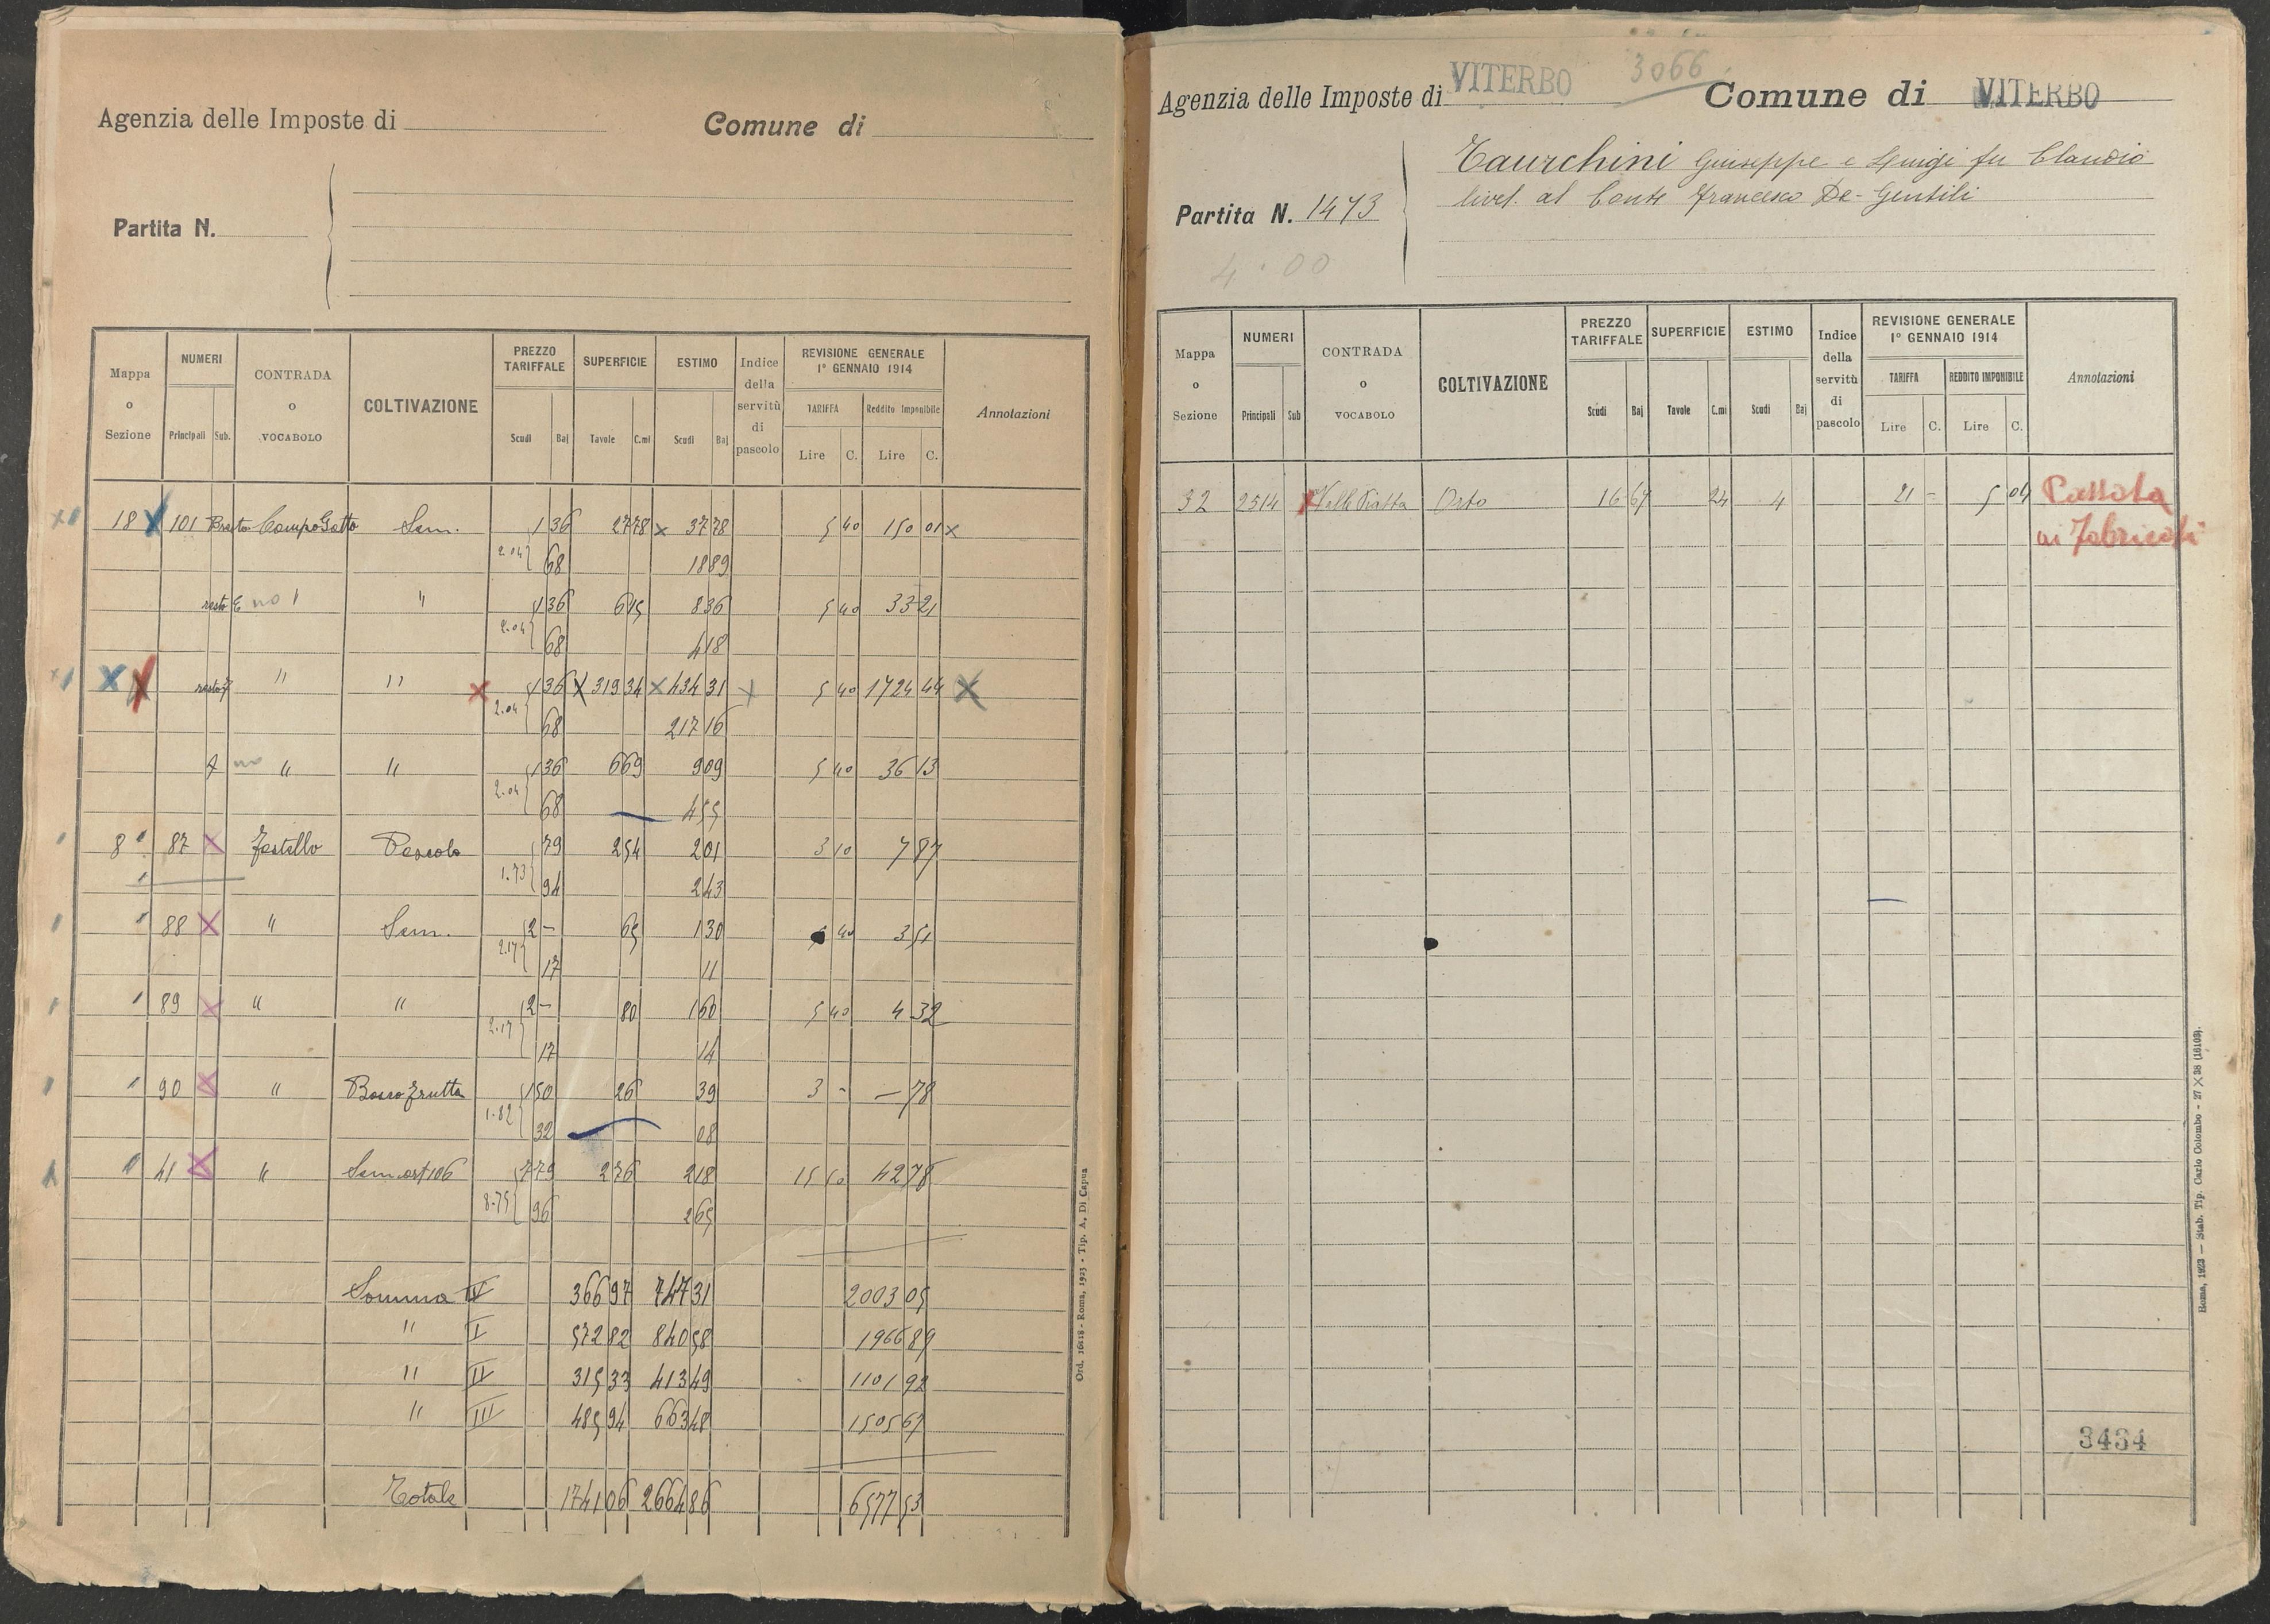 Agenzia delle Imposte di
Comune di
Partita N.
Mappa o Sezione
NUMERI
Principali Sub.
CONTRADA o VOCABOLO
COLTIVAZIONE
PREZZO TARIFFALE
Scudi Baj
SUPERFICIE
Tavole C.mi
ESTIMO
Scudi Baj
Indice della servitù di pascolo
REVISIONE GENERALE 1° GENNAIO 1914
TARIFFA
Lire C.
Reddito Imponibile
Lire C.
Annotazioni
18 101 Sem. 1 36 27 78 37 78 5 40 150 01
2.04 68 18 89
resto E no " 1 36 6 15 8 36 5 40 33 21
2.04 68 4 18
resto F " " 1 36 319 34 434 31 5 40 1724 44
2.04 68 217 16
no " " 1 36 6 69 9 09 5 40 36 13
2.04 68 4 55
8 87 Fastello Pascolo 79 2 54 2 01 3 10 7 87
1.73 94 2 43
88 " Sem. 2 - 65 1 30 5 40 3 51
2.17 17 11
89 " " 2 - 80 1 60 5 40 4 32
2.17 17 14
90 " Bosco frutta 1 50 26 39 3 - - 78
1.82 32 08
41 " 7 79 2 76 2 18 15 50 42 78
8.75 96 2 65
Somma IV 366 97 747 31 2003 05
" I 572 82 840 58 1966 89
" II 315 33 413 49 1101 92
" III 485 94 663 48 1505 67
Totale 1741 06 2664 86 6577 53
Ord. 16418 - Roma, 1923 - Tip. A. Di Capua
Agenzia delle Imposte di VITERBO
3066
Comune di VITERBO
Partita N. 1473
Taurchini Giuseppe e Luigi fu Claudio
livel. al Conte Francesco De-Gentili
4.00
Mappa o Sezione
NUMERI
Principali Sub
CONTRADA o VOCABOLO
COLTIVAZIONE
PREZZO TARIFFALE
Scudi Baj
SUPERFICIE
Tavole C.mi
ESTIMO
Scudi Baj
Indice della servitù di pascolo
REVISIONE GENERALE 1° GENNAIO 1914
TARIFFA
Lire C.
REDDITO IMPONIBILE
Lire C.
Annotazioni
32 2514 Valle Piatta Orto 16 67 24 4 21 - 5 04 Passata
ai Fabricati
3434
Roma, 1923 — Stab. Tip. Carlo Colombo - 27 X 38 (16103).